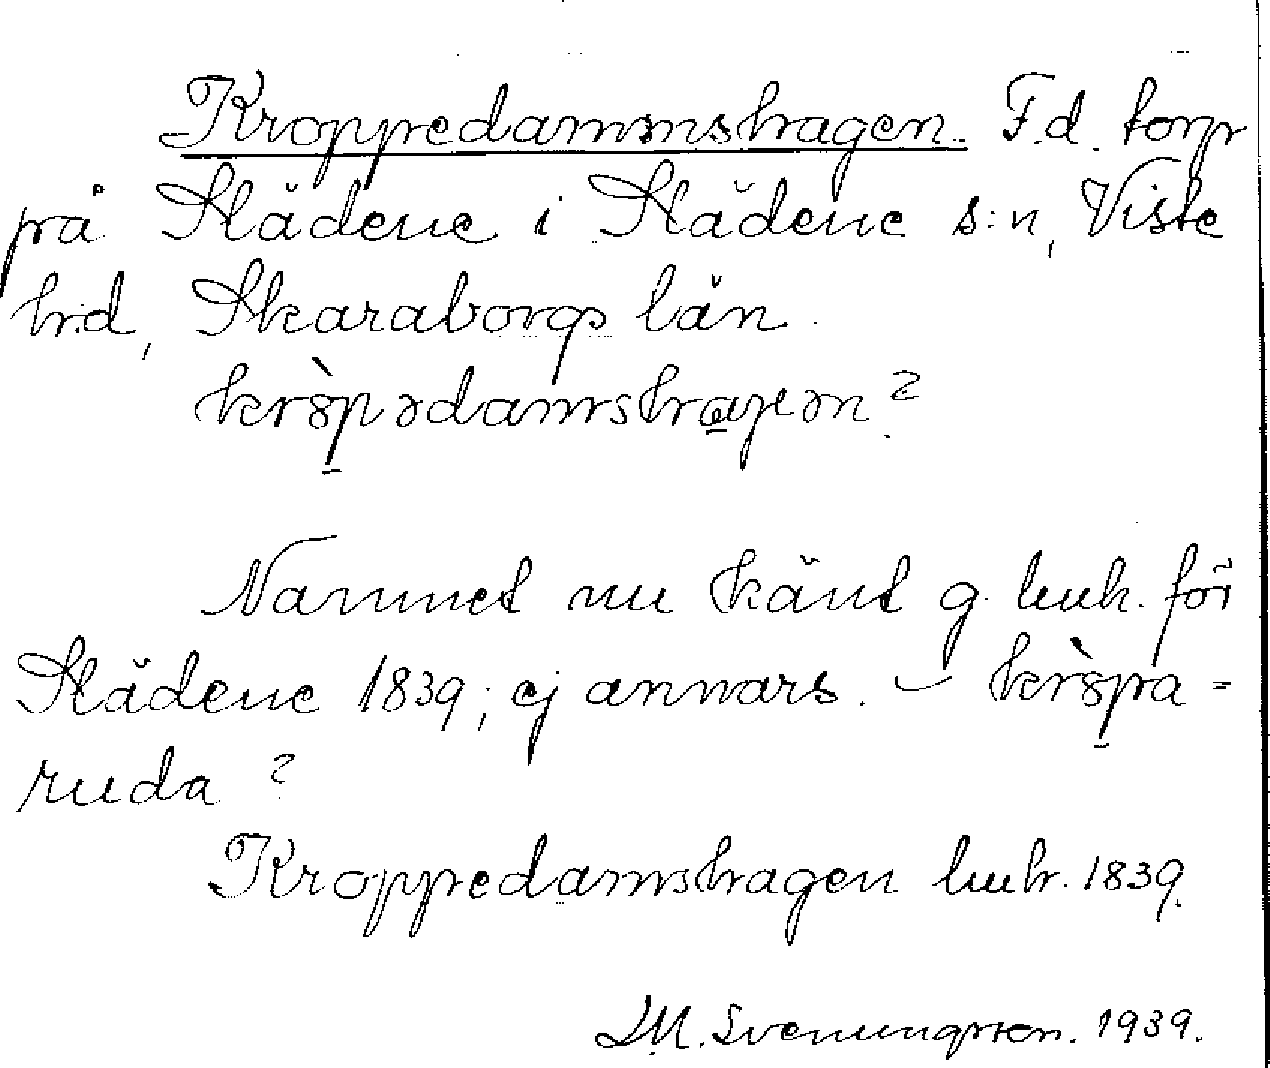 Kroppedammshagen. F.d. torp
på Slädene i Slädene s:n, Viste
hd, Skaraborgs län.
krɔ̀pədamshaɡen?
Namnet nu känt g. huk. för
Slädene 1839; ej annars. – kròpa-
ruda?
Kroppedamshagen huk. 1839.
LM. Svenungsson. 1939.